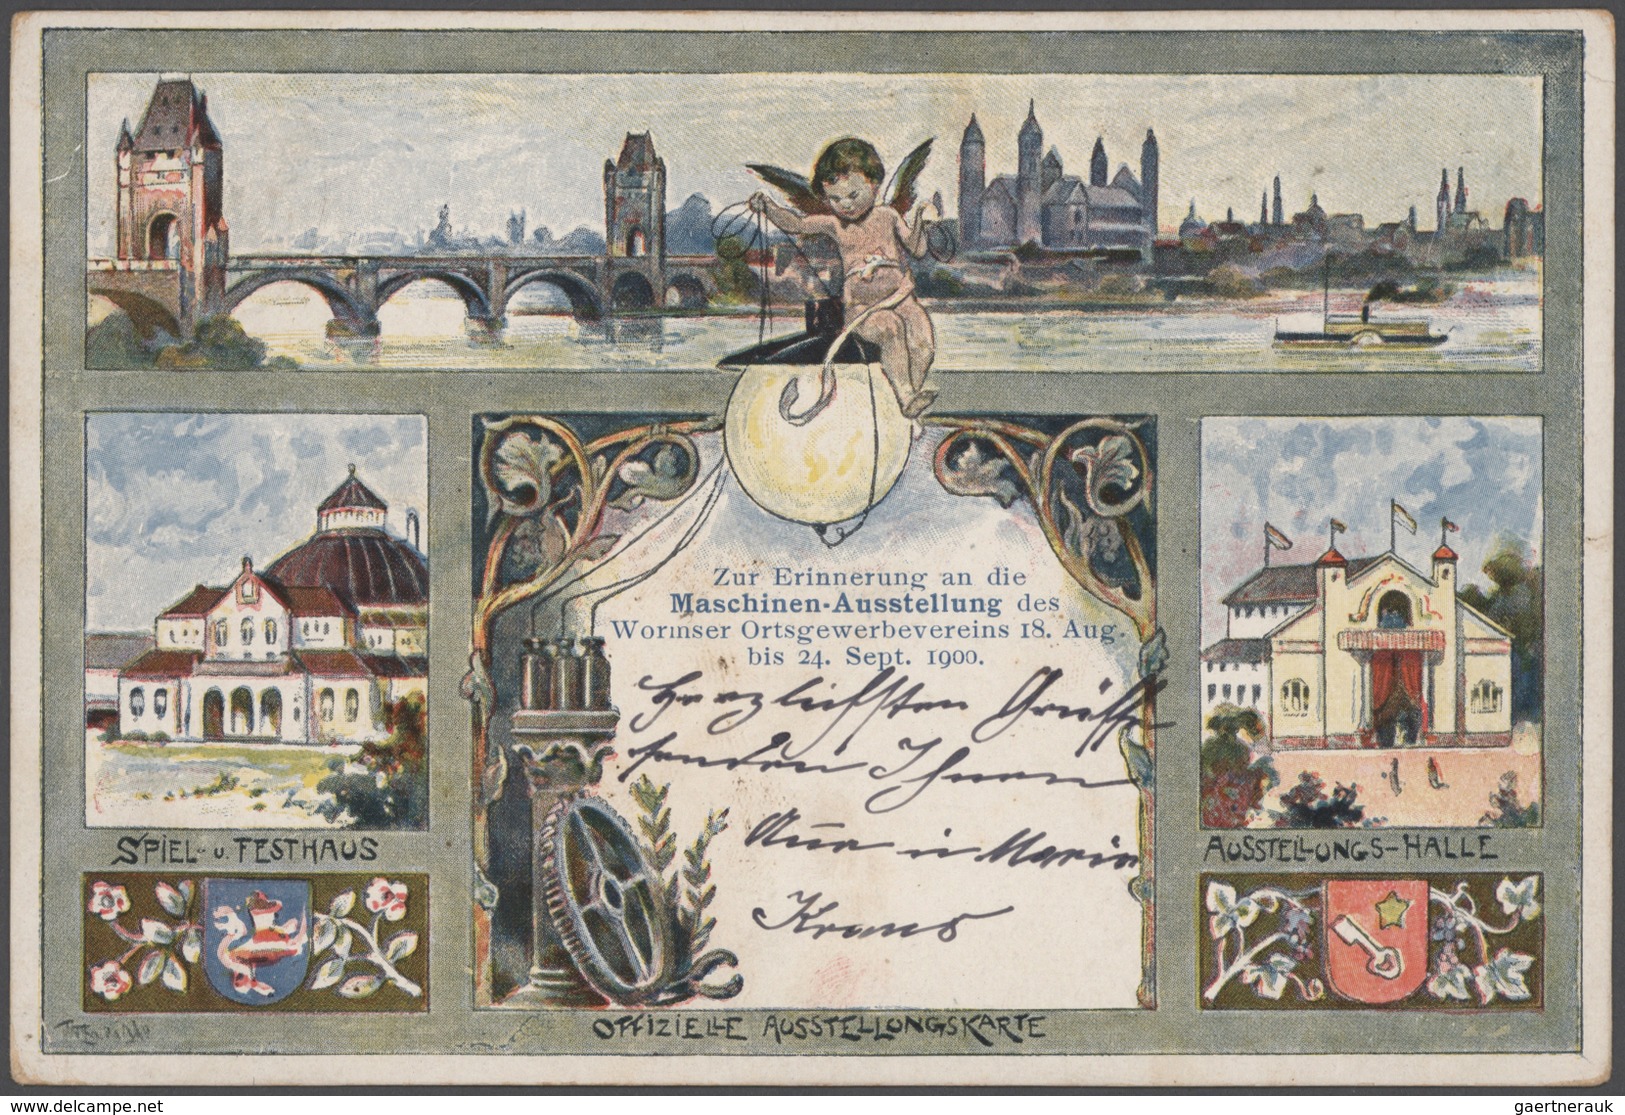 Zur Erinnerung an die
Maschinen-Ausstellung des
Wormser Ortsgewerbevereins 18. Aug.
bis 24. Sept. 1900.
Herzlichsten Grüße
senden Ihnen
u Maria
Kraus
SPIEL- u. FESTHAUS
AUSSTELLUNGS-HALLE
OFFIZIELLE AUSSTELLUNGSKARTE
delcampe.net
gaertnerauk